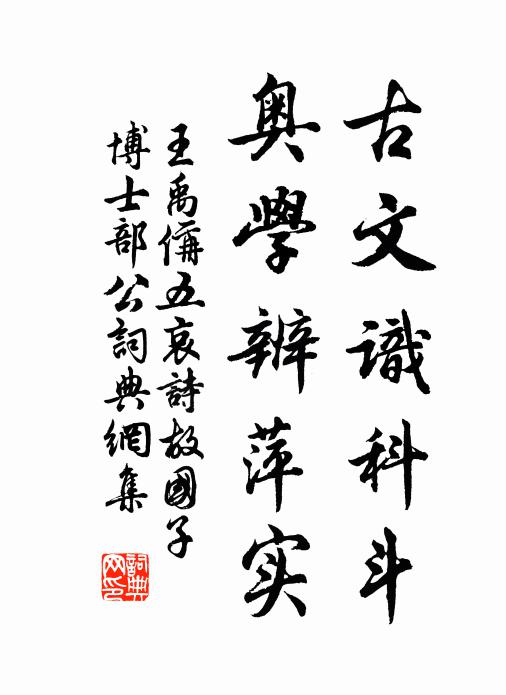 古文識科斗
奥學辨萍实
王禹偁五哀詩故國子
博士部公詞典網集
詞典
网印